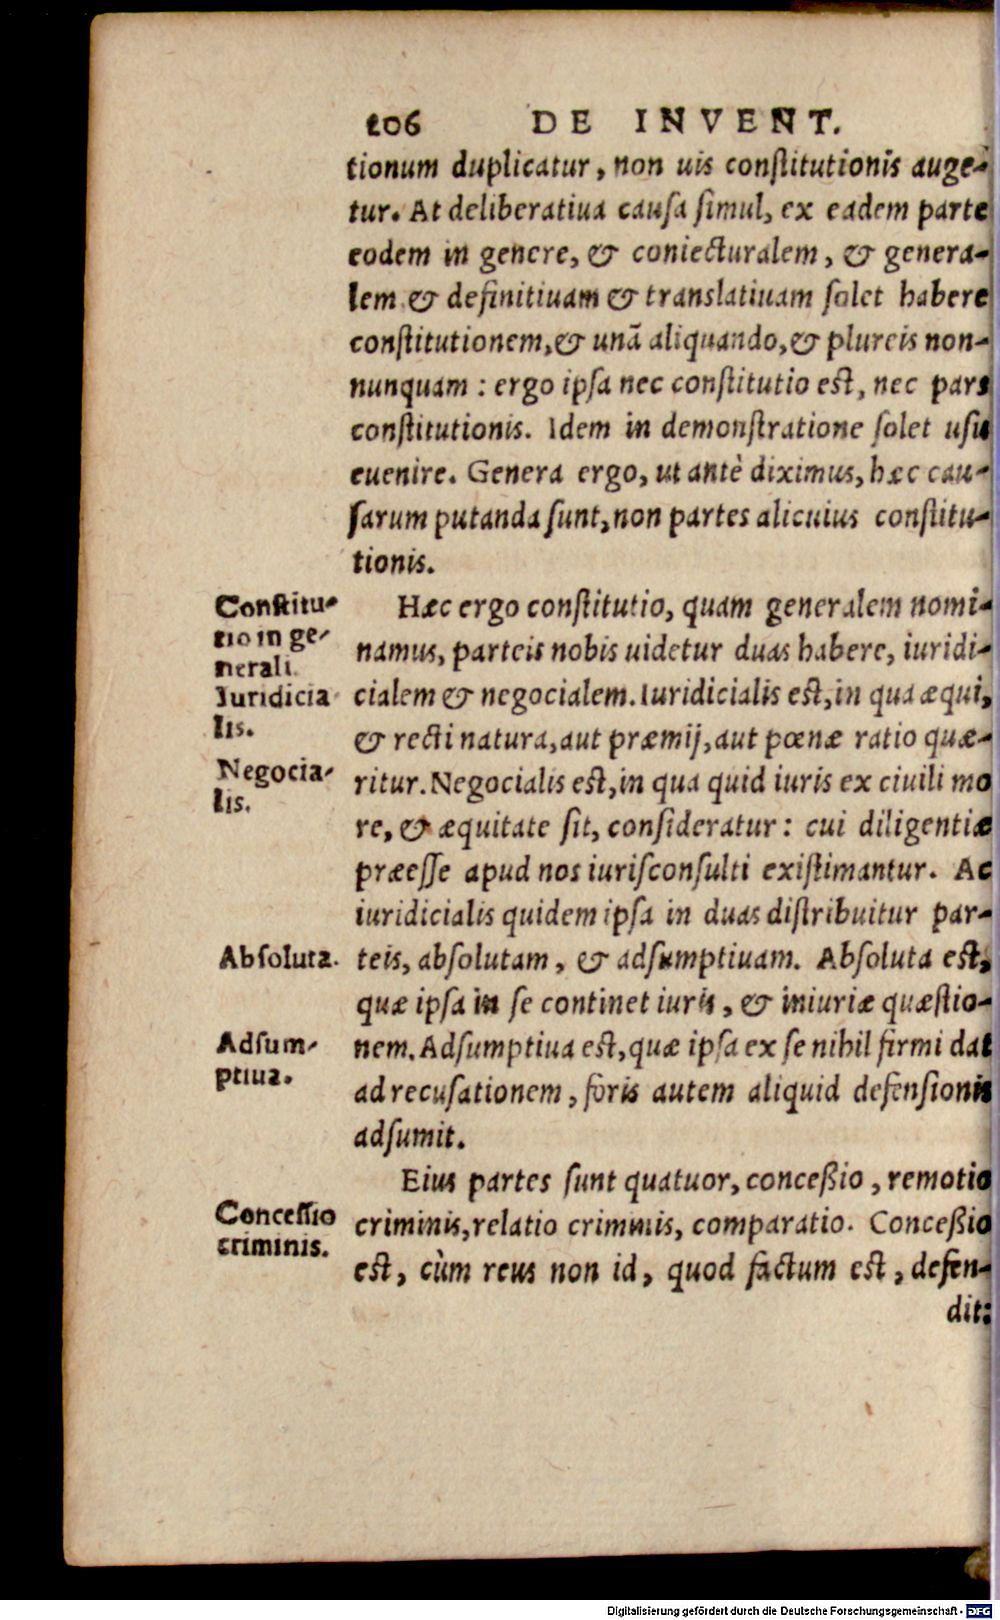 106 DE INVENT.
tionum duplicatur, non uis constitutionis auge-
tur. At deliberatiua causa simul, ex eadem parte
eodem in genere, & coniecturalem, & genera-
lem & definitiuam & translatiuam solet habere
constitutionem, & unā aliquando, & plureis non-
nunquam : ergo ipsa nec constitutio est, nec pars
constitutionis. Idem in demonstratione solet usu
euenire. Genera ergo, ut antè diximus, hæc cau-
sarum putanda sunt, non partes alicuius constitu-
tionis.
Constitu-
tio in ge-
nerali.
Iuridicia
lis.
Negocia-
lis.
Hæc ergo constitutio, quam generalem nomi-
namus, parteis nobis uidetur duas habere, iuridi-
cialem & negocialem. Iuridicialis est, in qua æqui,
& recti natura, aut præmij, aut pœnæ ratio quæ-
ritur. Negocialis est, in qua quid iuris ex ciuili mo
re, & æquitate sit, consideratur: cui diligentiæ
præesse apud nos iurisconsulti existimantur. Ac
iuridicialis quidem ipsa in duas distribuitur par-
Absoluta.
teis, absolutam, & adsumptiuam. Absoluta est,
quæ ipsa in se continet iuris, & iniuriæ quæstio-
Adsum-
ptiua.
nem. Adsumptiua est, quæ ipsa ex se nihil firmi dat
ad recusationem, foris autem aliquid defensionis
adsumit.
Eius partes sunt quatuor, conceßio, remotio
Concessio
criminis.
criminis, relatio criminis, comparatio. Conceßio
est, cùm reus non id, quod factum est, defen-
dit:
Digitalisierung gefördert durch die Deutsche Forschungsgemeinschaft - DFG